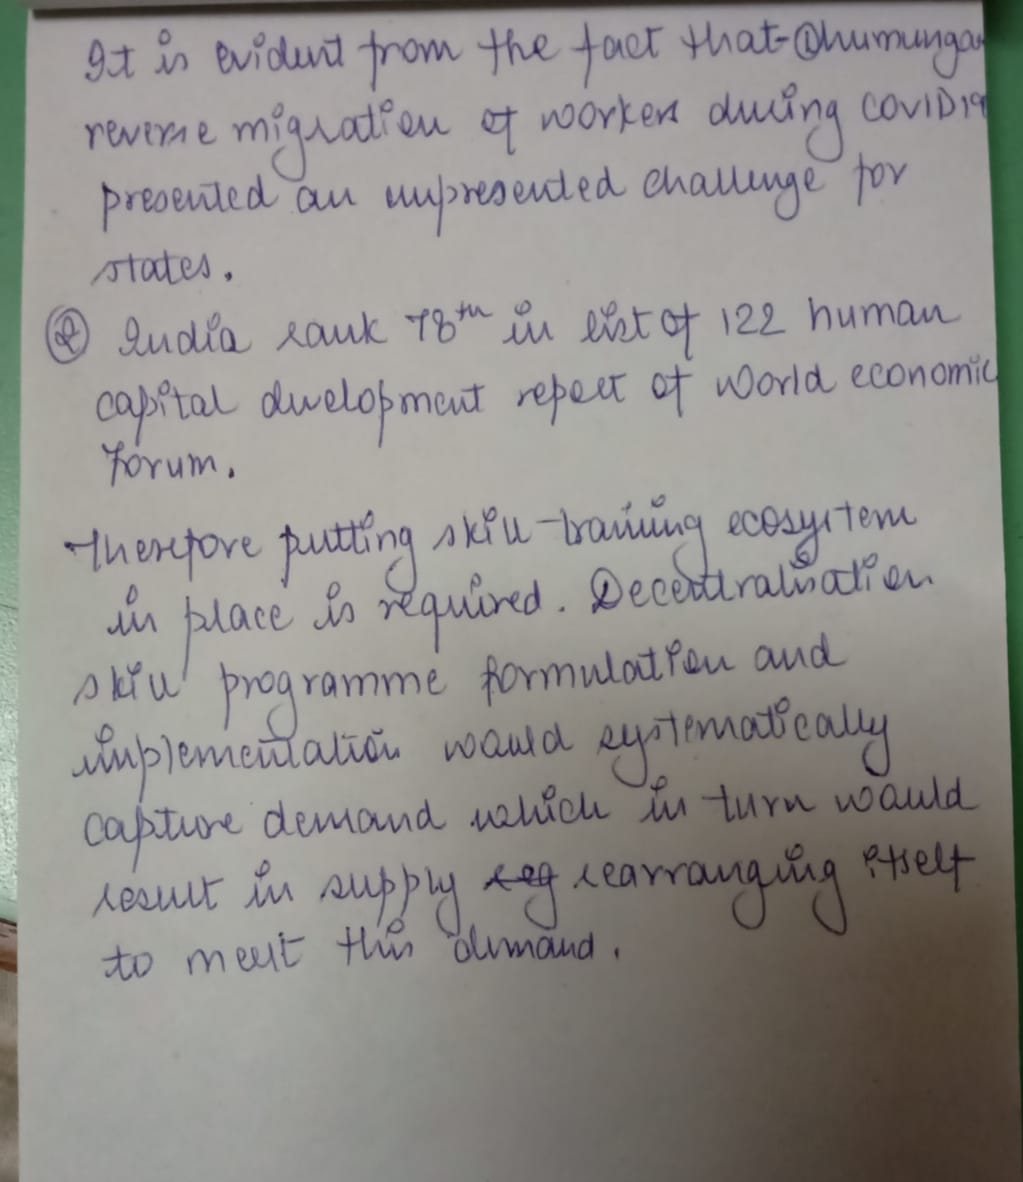 It is evident from the fact that- ① humungou
reverse migration of workers during COVID19
presented an unpresented challenge for
states.
② India rank 78th in list of 122 human
capital development report of World economic
forum.
Therefore putting skill-training ecosystem
in place is required. Decentralisation
skill programme formulation and
implementation would systematically
capture demand which in turn would
result in supply rearranging itself
to meet this demand.